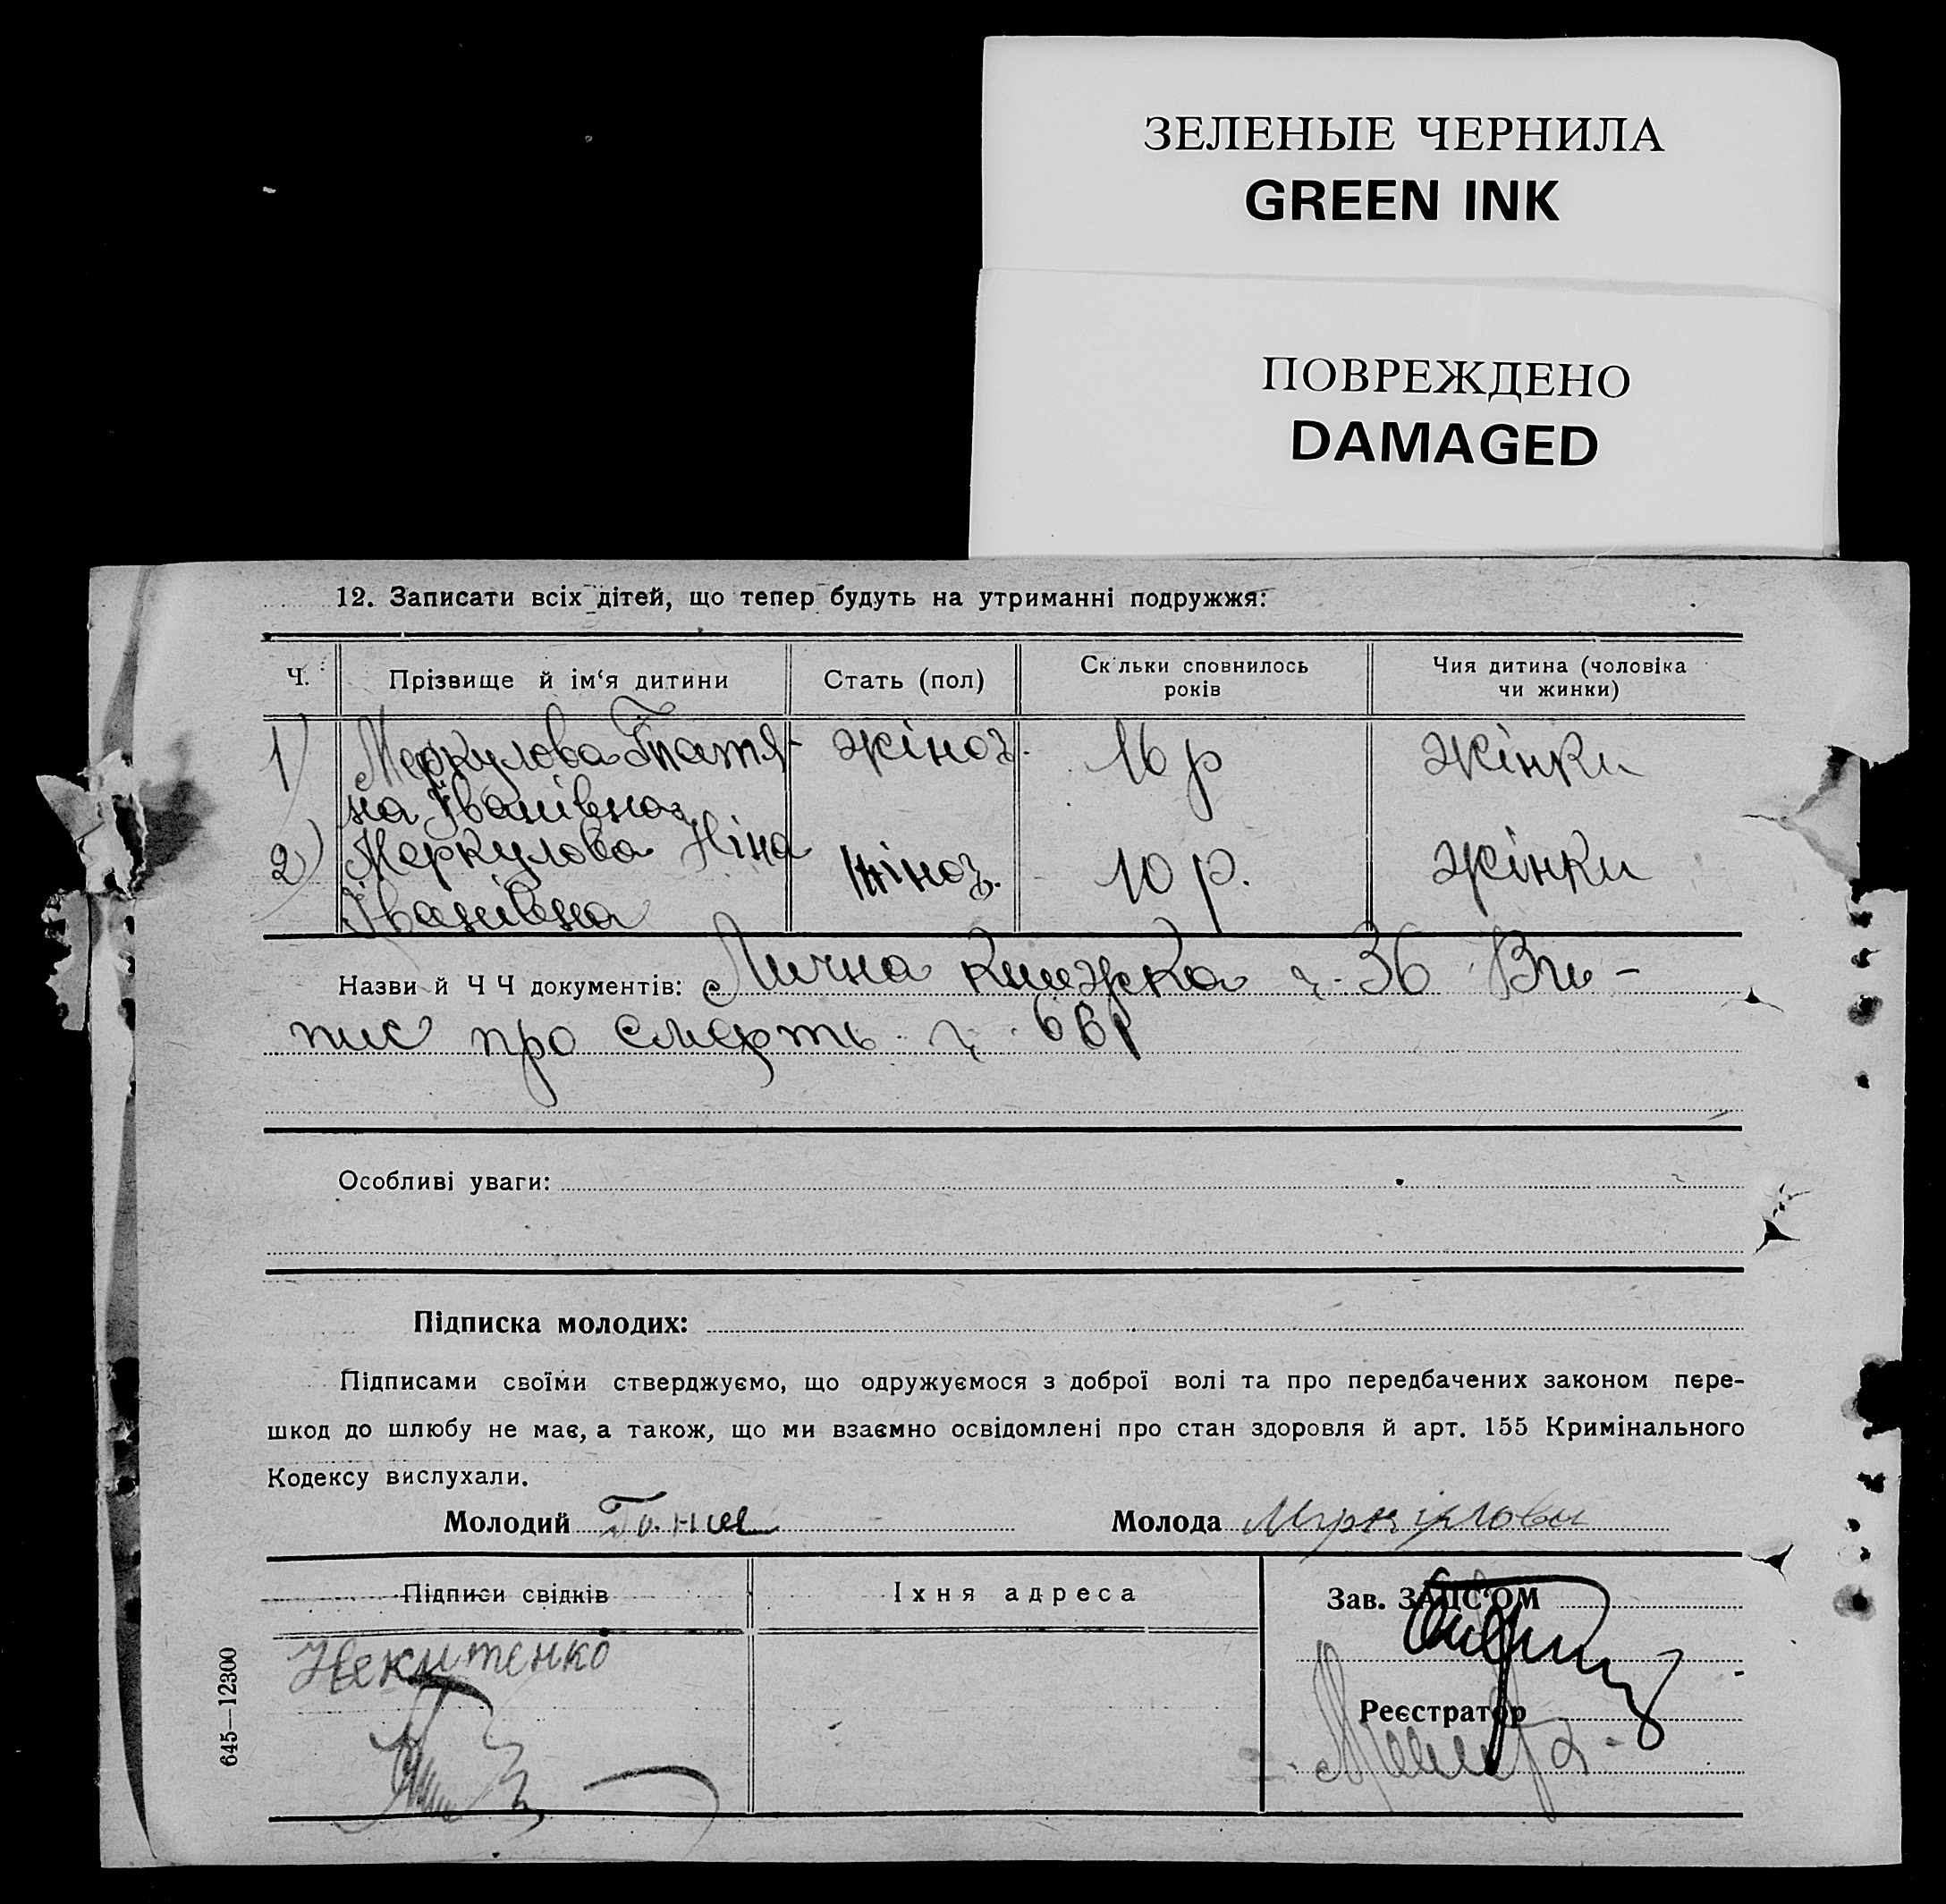 ЗЕЛЕНЫЕ ЧЕРНИЛА
GREEN INK
ПОВРЕЖДЕНО
DAMAGED
12. Записати всіх дітей, що тепер будуть на утриманні подружжя:
Ч. Прізвище й ім‘я дитини Стать (пол) Скільки сповнилось років Чия дитина (чоловіка чи жинки)
1) Меркулова Татя- жіноч. 16 р жінки
на Іванівна
2) Меркулова Ніна жіноч. 10 р. жінки
Іванівна
Назви й Ч Ч документів: Лична книжка ч. 36 Ви-
пис про смерть ч.
Особливі уваги:
Підписка молодих:
Підписами своїми стверджуємо, що одружуємося з доброї волі та про передбачених законом пере-
шкод до шлюбу не має, а також, що ми взаємно освідомлені про стан здоровля й арт. 155 Кримінального
Кодексу вислухали.
Молодий Молода
Підписи свідків Іхня адреса Зав. ЗАПС‘ОМ
Некитенко
Реєстратор
645—12300